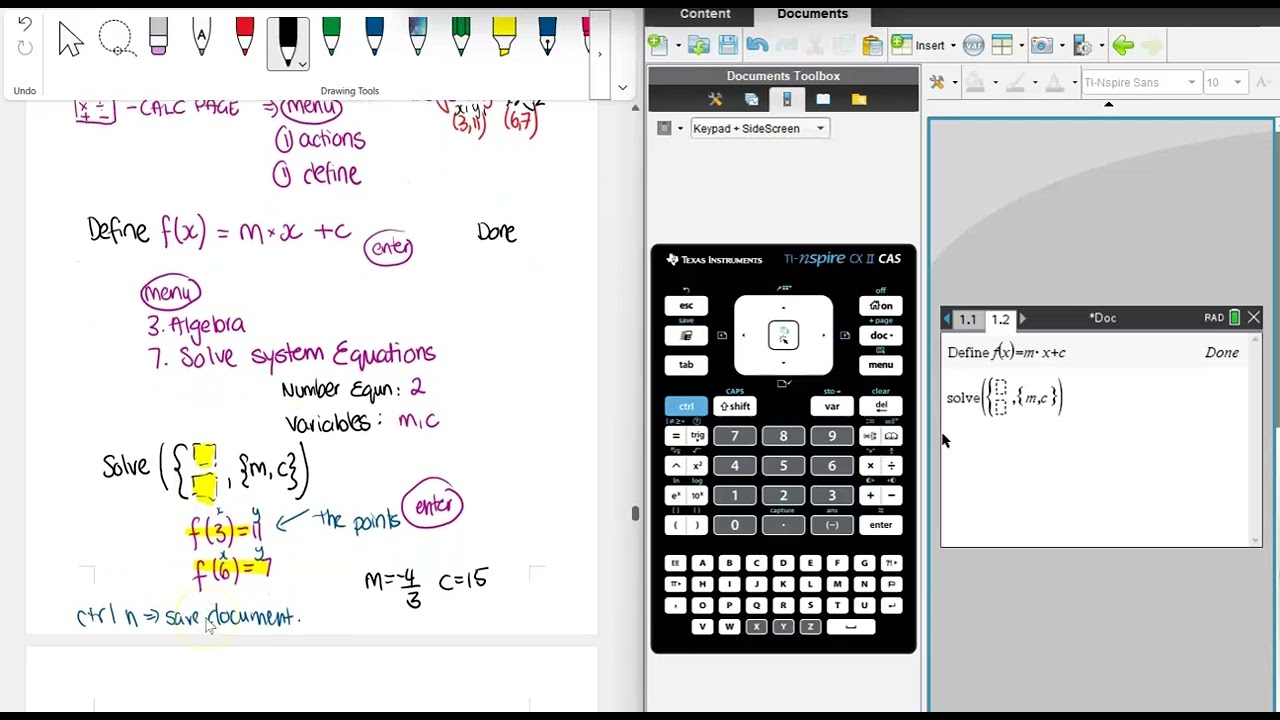 Content Documents
Insert
Undo
Drawing Tools
Documents Toolbox
TI-Nspire Sans 10
Keypad + SideScreen
- CALC PAGE ⇒ menu
(3,11) (6,7)
① actions
① define
Define f(x) = m × x + c enter Done
menu
3. Algebra
7. Solve system Equations
Number Equn: 2
Variables: m, c
Solve ({ , {m, c})
f(3) = 11 ← the points enter
x y
f(6) = 7
x y
m = -4/3 c = 15
ctrl n ⇒ save document.
TEXAS INSTRUMENTS TI-nspire CX II CAS
off
esc on
save + page
doc
tab menu
CAPS sto→ clear
ctrl shift var del
= trig 7 8 9
^ x² 4 5 6 × ÷
ln log
eˣ 10ˣ 1 2 3 + −
{ } capture ans [ ]
( ) 0 . (−) enter
EE A B C D E F ?!
π G H I J K L
, M N O P Q R
V W X Y Z
1.1 1.2 *Doc RAD
Define f(x)=m·x+c Done
solve({ ,{m,c})